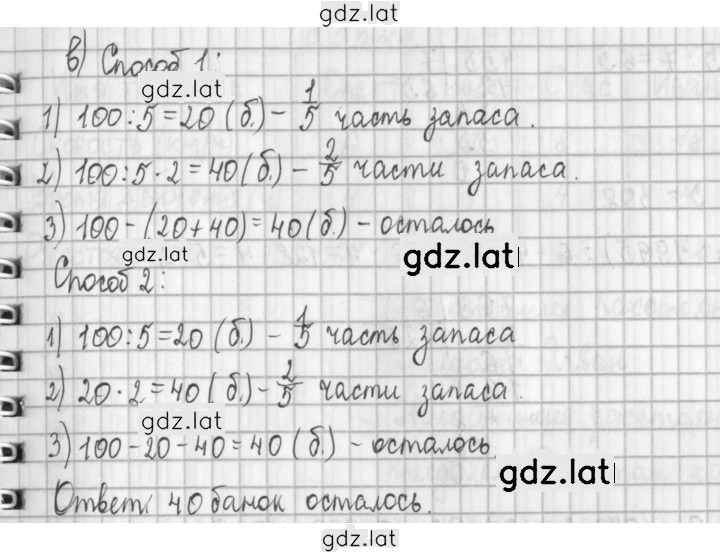 gdz.lat
в) Способ 1:
gdz.lat
1) 100:5=20 (б.) – 1/5 часть запаса.
2) 100:5·2=40 (б.) – 2/5 части запаса.
3) 100-(20+40)=40 (б.) – осталось
gdz.lat
gdz.lat
Способ 2:
1) 100:5=20 (б.) – 1/5 часть запаса
2) 20·2=40 (б.) – 2/5 части запаса.
gdz.lat
3) 100-20-40=40 (б.) – осталось
gdz.lat
Ответ: 40 банок осталось.
gdz.lat